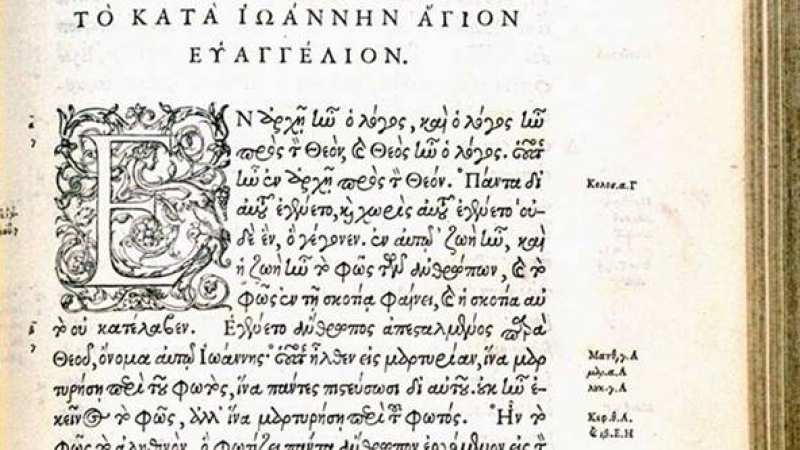 ΤΟ ΚΑΤΑ ἸΩΑΝΝΗΝ ἍΓΙΟΝ
ΕΥ̓ΑΓΓΕΛΙΟΝ.
ΕΝ ἀρχῇ ἦν ὁ λόγος, καὶ ὁ λόγος ἦν
πρὸς τὸν Θεόν, καὶ Θεὸς ἦν ὁ λόγος. οὗτος
ἦν ἐν ἀρχῇ πρὸς τὸν Θεόν. Πάντα δι
αὐτοῦ ἐγένετο, καὶ χωρὶς αὐτοῦ ἐγένετο οὐ-
δὲ ἓν, ὃ γέγονεν. ἐν αὐτῷ ζωὴ ἦν, καὶ
ἡ ζωὴ ἦν τὸ φῶς τῶν ἀνθρώπων, καὶ τὸ
φῶς ἐν τῇ σκοτίᾳ φαίνει, καὶ ἡ σκοτία αὐ
τὸ οὐ κατέλαβεν. Ἐγένετο ἄνθρωπος ἀπεσταλμένος παρὰ
Θεοῦ, ὄνομα αὐτῷ Ἰωάννης· οὗτος ἦλθεν εἰς μαρτυρίαν, ἵνα μαρ
τυρήσῃ περὶ τοῦ φωτὸς, ἵνα πάντες πιστεύσωσι δι αὐτοῦ. οὐκ ἦν ἐ-
κεῖνος τὸ φῶς, ἀλλ' ἵνα μαρτυρήσῃ περὶ τοῦ φωτός. Ἦν τὸ
φῶς τὸ ἀληθινὸν, ὃ φωτίζει πάντα ἄνθρωπον ἐρχόμενον εἰς τὸν
Κολοσ.α.Γ
Ματθ.γ.Α
μαρ.α.Α
λουκ.γ.Α
Κεφ.θ.Α.